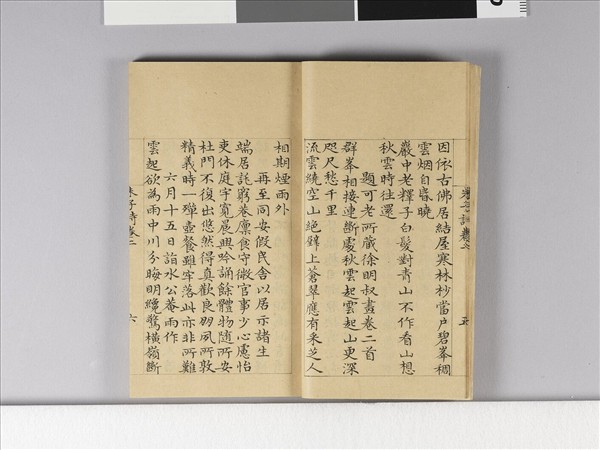 朱子詩卷二 五
因依古佛居結屋寒林杪當户碧峯稠
雲烟自昏曉
巖中老釋子白髮對青山不作看山想
秋雲時往還
題可老所藏徐明叔畫卷二首
群峯相接連斷處秋雲起雲起山更深
咫尺愁千里
流雲繞空山絶壁上蒼翠應有采芝人
相期煙雨外
再至同安假民舍以居示諸生
端居託窮巷廪食守微官事少心慮怡
吏休庭宇寛晨興吟誦餘體物隨所安
杜門不復出悠然得真歡良朋夙所敦
精義時一殫壺餐雖牢落此亦非所難
六月十五日詣水公菴雨作
雲起欲為雨中川分晦明纔驚橫嶺斷
朱子詩卷二 六